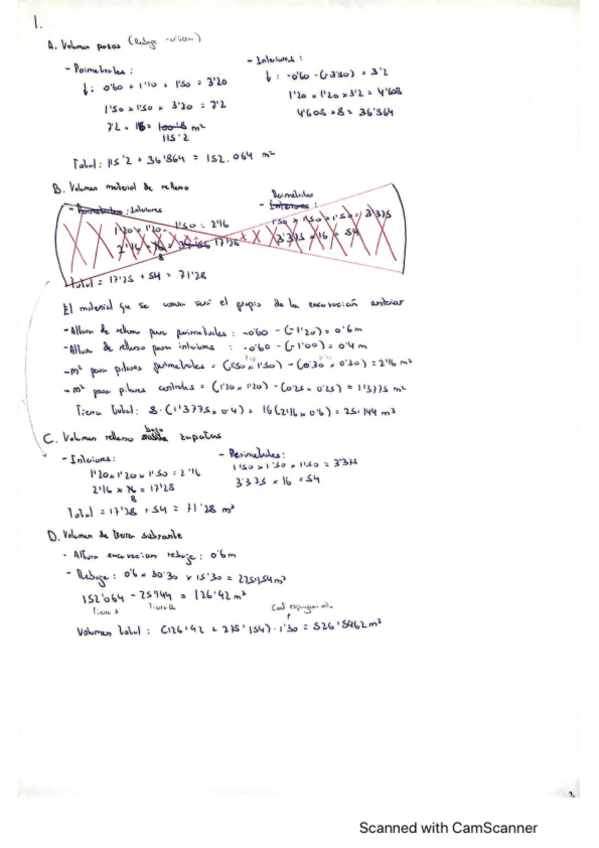 1.
A. Volumen pozos (Rebaje -0'60m)
- Perimetrales:
↓: 0'60 + 1'10 + 1'50 = 3'20
1'50 x 1'50 x 3'20 = 7'2
7'2 · 16 = 100'8 m²
115'2
- Interiores:
↓: -0'60 - (-3'80) = 3'2
1'20 x 1'20 x 3'2 = 4'608
4'608 x 8 = 36'864
Total: 115'2 + 36'864 = 152.064 m²
B. Volumen material de relleno
- Perimetrales: Interiores
1'20 x 1'20 · 1'50 = 2'16
8
Perimetrales
- Interiores:
1'50 x 1'50 x 1'50 = 3'375
3'375 x 16 = 54
Total = 17'25 + 54 = 71'28
El material que se usara será el propio de la excavación anterior
- Altura de relleno para perimetrales: -0'60 - (-1'20) = 0'6 m
- Altura de relleno para interiores: -0'60 - (-1'00) = 0'4 m
- m² para pilares perimetrales = (1'50 x 1'50) - (0'30 x 0'30) = 2'16 m²
- m² para pilares centrales = (1'20 x 1'20) - (0'25 · 0'25) = 1'3775 m²
Tierra total: 8 · (1'3775 x 0'4) + 16 (2'16 x 0'6) = 25'144 m³
C. Volumen relleno bajo zapatas
- Interiores:
1'20 x 1'20 x 1'50 = 2'16
2'16 x 16 = 17'28
8
- Perimetrales:
1'50 x 1'50 x 1'50 = 3'375
3'375 x 16 = 54
Total = 17'28 + 54 = 71'28 m³
D. Volumen de tierra sobrante
- Altura excavacion rebaje: 0'6 m
- Rebaje: 0'6 x 30'30 x 15'30 = 275'154 m³
152'064 - 25'144 = 126'92 m³
Tierra A Tierra B
Coef esponjamiento
Volumen total: (126'92 + 275'154) · 1'30 = 526'5962 m³
2
Scanned with CamScanner